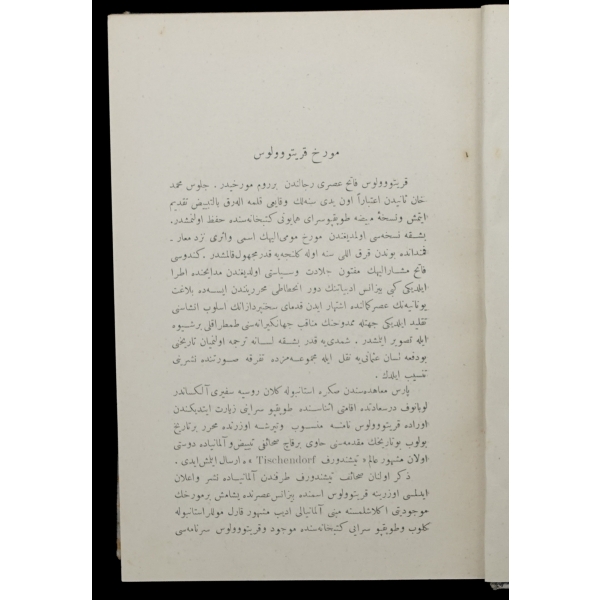 مورخ قریتووولوس
قریتووولوس فاتح عصری رجالندن برروم مورخیدر . جلوس محمد
خان ثانیدن اعتباراً اون یدی سنه‌لك وقایعی قلمه اله‌رق بالتبییض تقدیم
ایتمش ونسخهٔ مبیضه طوپقپو سرای همایونی کتبخانه‌سنده حفظ اولنمشدر.
بشقه نسخه‌سی اولمدیغندن مورخ مومی‌الیهك اسمی واثری نزد معار ـ
فمندانده بوندن قرق اللی سنه اوله کلنجه‌یه قدر مجهول قالمشدر. کندوسی
فاتح مشارالیهك مفتون جلادت وسیاستی اولدیغندن مدایحنده اطرا
ایلدیکی کبی بیزانس ادبیاتنك دور انحطاطی محررینندن ایسه‌ده بلاغت
یونانیه‌نك عصر کمالنده اشتهار ایدن قدمای سخنپردازانك اسلوب انشاسنی
تقلید ایلدیکی جهتله ممدوحنك مناقب جهانکیرانه‌سنی طمطراقلی برشیوه
ایله تصویر ایتمشدر . شمدی‌یه قدر بشقه لسانه ترجمه اولنمیان تاریخنی
بودفعه لسان عثمانی‌یه نقل ایله مجموعه‌مزده تفرقه صورتنده نشرینی
تنسیب ایلدك .
پارس معاهده‌سندن صکره استانبوله کلان روسیه سفیری آلکساندر
لوبانوف درسعادتده اقامتی اثناسنده طوپقپو سراینی زیارت ایتدیکندن
اوراده قریتووولوس نامنه منسوب وتیرشه اوزرنده محرر برتاریخ
بولوب بوتاریخك مقدمه‌سنی حاوی برقاچ صحائفی تبییض وآلمانیاده دوستی
اولان مشهور عالم « تیشندورف Tischendorf » ه ارسال ایتمش ایدی .
ذکر اولنان صحائف تیشندورف طرفندن آلمانیاده نشر واعلان
ایدلمسی اوزرینه قریتووولوس اسمنده بیزانس عصرنده یشامش برمورخك
موجودیتی اکلاشلمسنه مبنی آلمانیالی ادیب مشهور قارل موللر استانبوله
کلوب وطوپقپو سرایی کتبخانه‌سنده موجود وقریتووولوس سرنامه‌سی